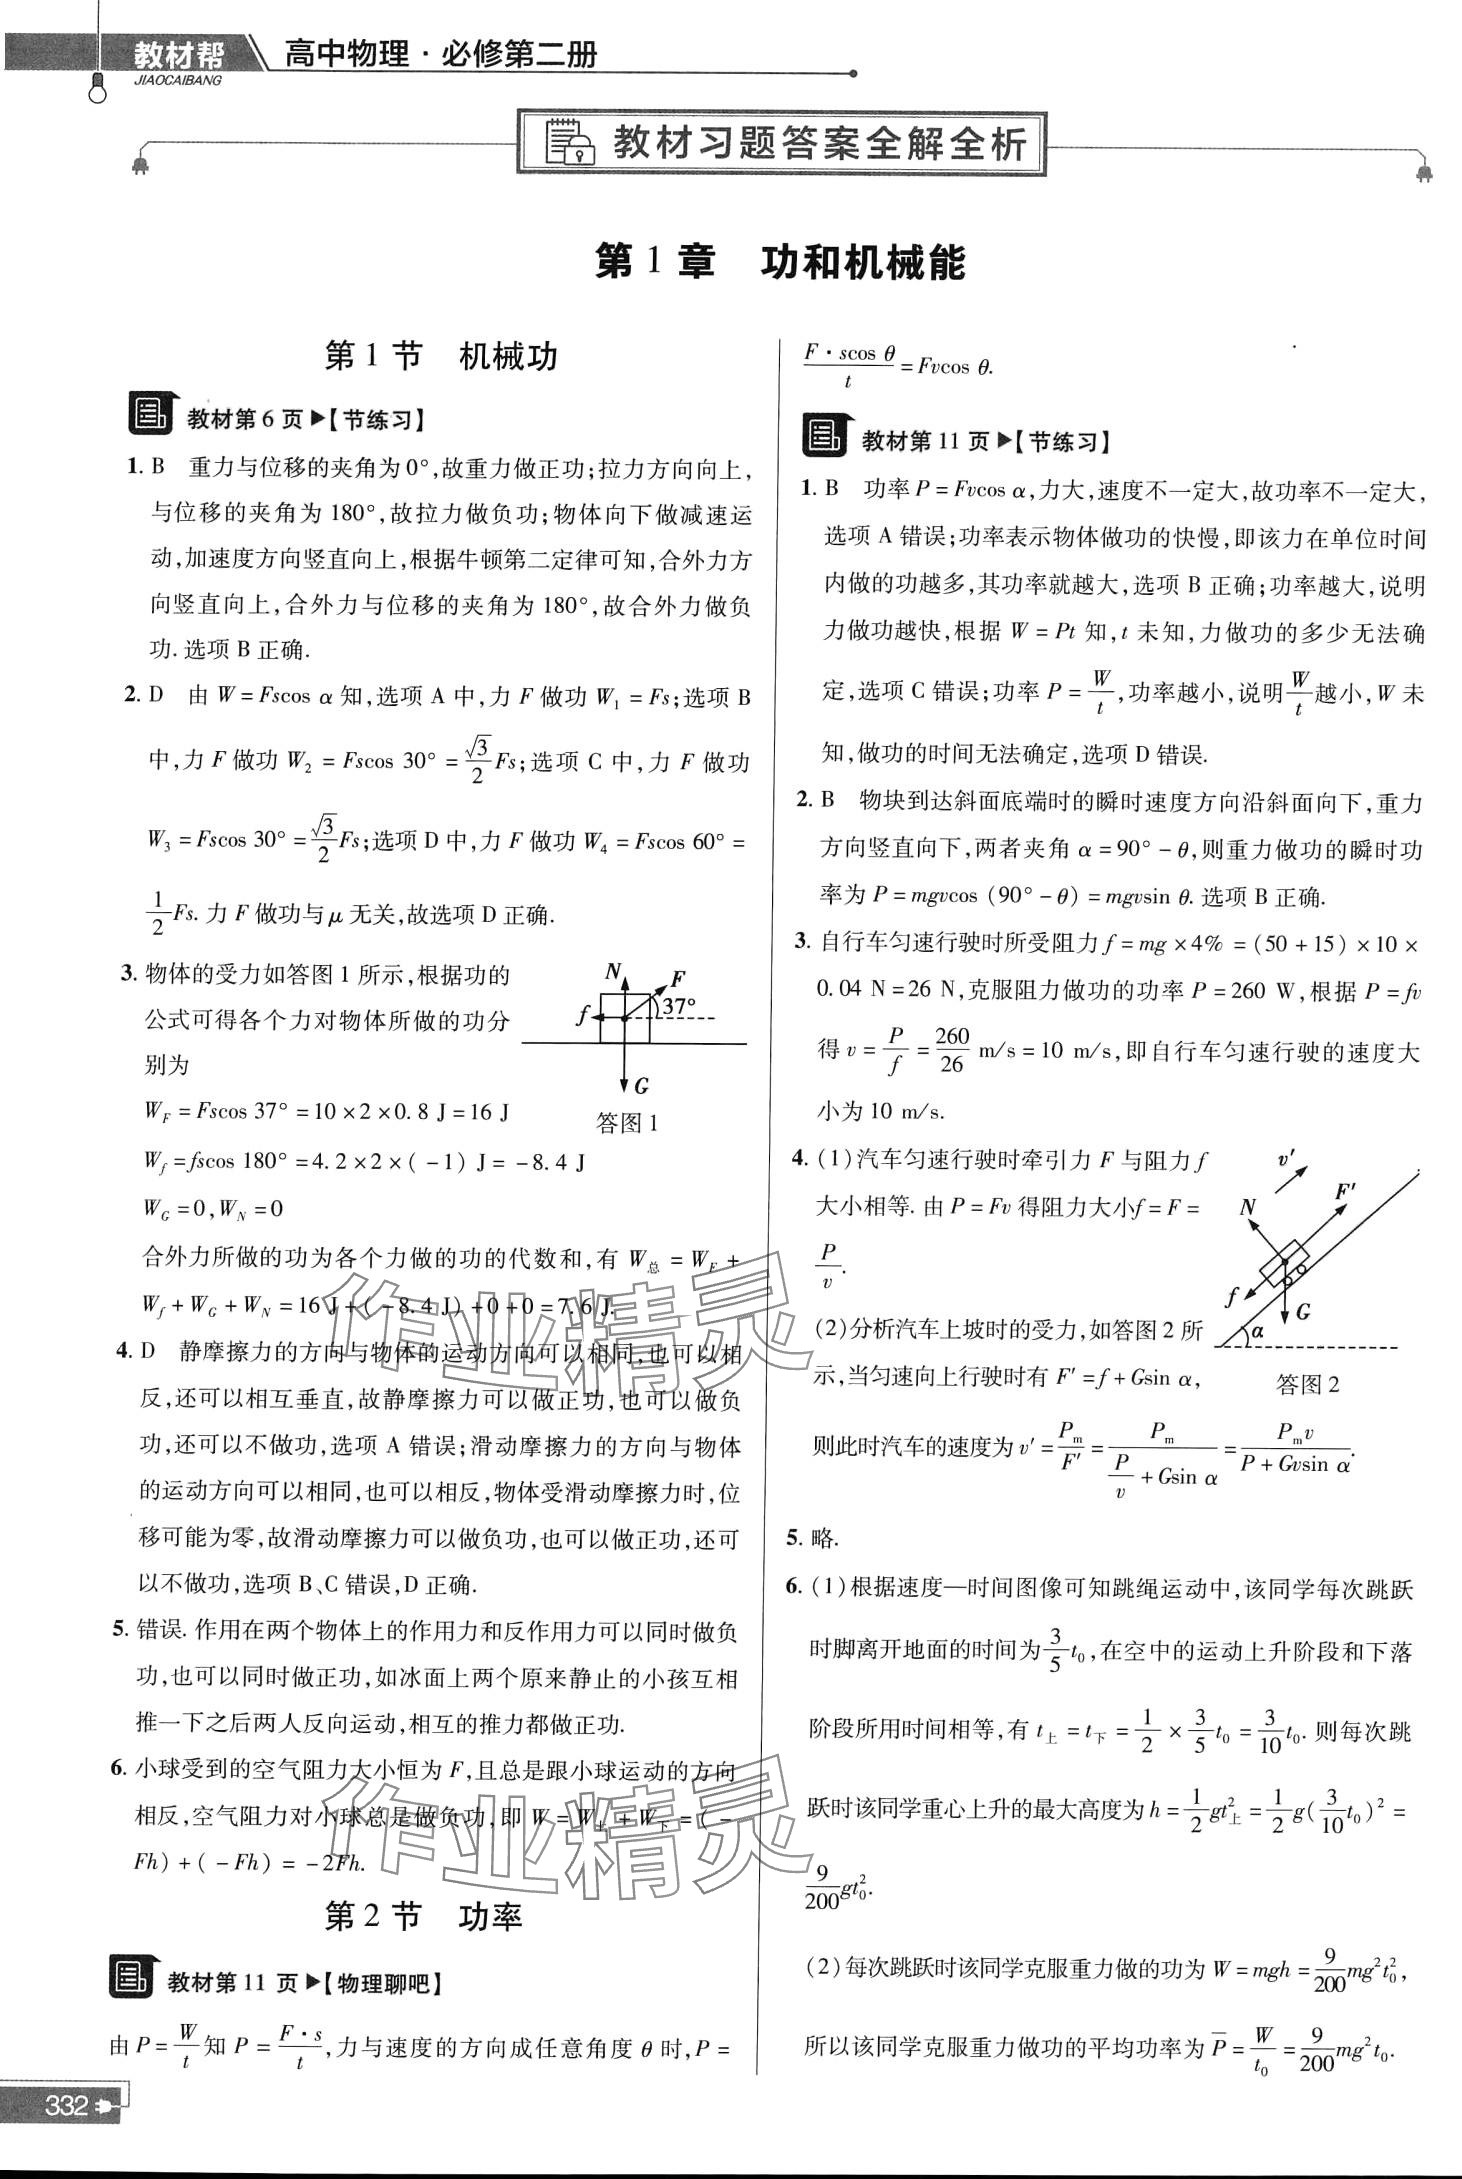 教材帮
JIAOCAIBANG
高中物理·必修第二册
教材习题答案全解全析
第1章 功和机械能
第1节 机械功
教材第6页▶【节练习】
1. B 重力与位移的夹角为0°,故重力做正功;拉力方向向上,
与位移的夹角为180°,故拉力做负功;物体向下做减速运
动,加速度方向竖直向上,根据牛顿第二定律可知,合外力方
向竖直向上,合外力与位移的夹角为180°,故合外力做负
功.选项B正确.
2. D 由 W=Fscos α 知,选项A中,力F做功 W₁=Fs;选项B
中,力F做功 W₂=Fscos 30°=√3/2 Fs;选项C中,力F做功
W₃=Fscos 30°=√3/2 Fs;选项D中,力F做功 W₄=Fscos 60°=
1/2 Fs.力F做功与μ无关,故选项D正确.
3. 物体的受力如答图1所示,根据功的
公式可得各个力对物体所做的功分
别为
W_F=Fscos 37°=10×2×0.8 J=16 J
W_f=fscos 180°=4.2×2×(-1) J=-8.4 J
W_G=0,W_N=0
N
F
f
37°
G
答图1
合外力所做的功为各个力做的功的代数和,有 W总=W_F+
W_f+W_G+W_N=16 J+(-8.4 J)+0+0=7.6 J.
4. D 静摩擦力的方向与物体的运动方向可以相同,也可以相
反,还可以相互垂直,故静摩擦力可以做正功,也可以做负
功,还可以不做功,选项A错误;滑动摩擦力的方向与物体
的运动方向可以相同,也可以相反,物体受滑动摩擦力时,位
移可能为零,故滑动摩擦力可以做负功,也可以做正功,还可
以不做功,选项B、C错误,D正确.
5. 错误.作用在两个物体上的作用力和反作用力可以同时做负
功,也可以同时做正功,如冰面上两个原来静止的小孩互相
推一下之后两人反向运动,相互的推力都做正功.
6. 小球受到的空气阻力大小恒为F,且总是跟小球运动的方向
相反,空气阻力对小球总是做负功,即 W=W上+W下=(-
Fh)+(-Fh)=-2Fh.
第2节 功率
教材第11页▶【物理聊吧】
由P=W/t知P=F·s/t,力与速度的方向成任意角度θ时,P=
332
F·scos θ/t=Fvcos θ.
教材第11页▶【节练习】
1. B 功率P=Fvcos α,力大,速度不一定大,故功率不一定大,
选项A错误;功率表示物体做功的快慢,即该力在单位时间
内做的功越多,其功率就越大,选项B正确;功率越大,说明
力做功越快,根据W=Pt知,t未知,力做功的多少无法确
定,选项C错误;功率P=W/t,功率越小,说明W/t越小,W未
知,做功的时间无法确定,选项D错误.
2. B 物块到达斜面底端时的瞬时速度方向沿斜面向下,重力
方向竖直向下,两者夹角α=90°-θ,则重力做功的瞬时功
率为P=mgvcos (90°-θ)=mgvsin θ.选项B正确.
3. 自行车匀速行驶时所受阻力f=mg×4%=(50+15)×10×
0.04 N=26 N,克服阻力做功的功率P=260 W,根据P=fv
得v=P/f=260/26 m/s=10 m/s,即自行车匀速行驶的速度大
小为10 m/s.
4. (1)汽车匀速行驶时牵引力F与阻力f
大小相等.由P=Fv得阻力大小f=F=
P/v.
(2)分析汽车上坡时的受力,如答图2所
示,当匀速向上行驶时有F'=f+Gsin α,
v'
N
F'
f
G
α
答图2
则此时汽车的速度为v'=Pm/F'=Pm/(P/v+Gsin α)=Pmv/(P+Gvsin α).
5. 略.
6. (1)根据速度—时间图像可知跳绳运动中,该同学每次跳跃
时脚离开地面的时间为3/5 t₀,在空中的运动上升阶段和下落
阶段所用时间相等,有t上=t下=1/2×3/5 t₀=3/10 t₀.则每次跳
跃时该同学重心上升的最大高度为h=1/2 gt上²=1/2 g(3/10 t₀)²=
9/200 gt₀².
(2)每次跳跃时该同学克服重力做的功为W=mgh=9/200 mg²t₀²,
所以该同学克服重力做功的平均功率为P̄=W/t₀=9/200 mg²t₀.
作业精灵
作业精灵